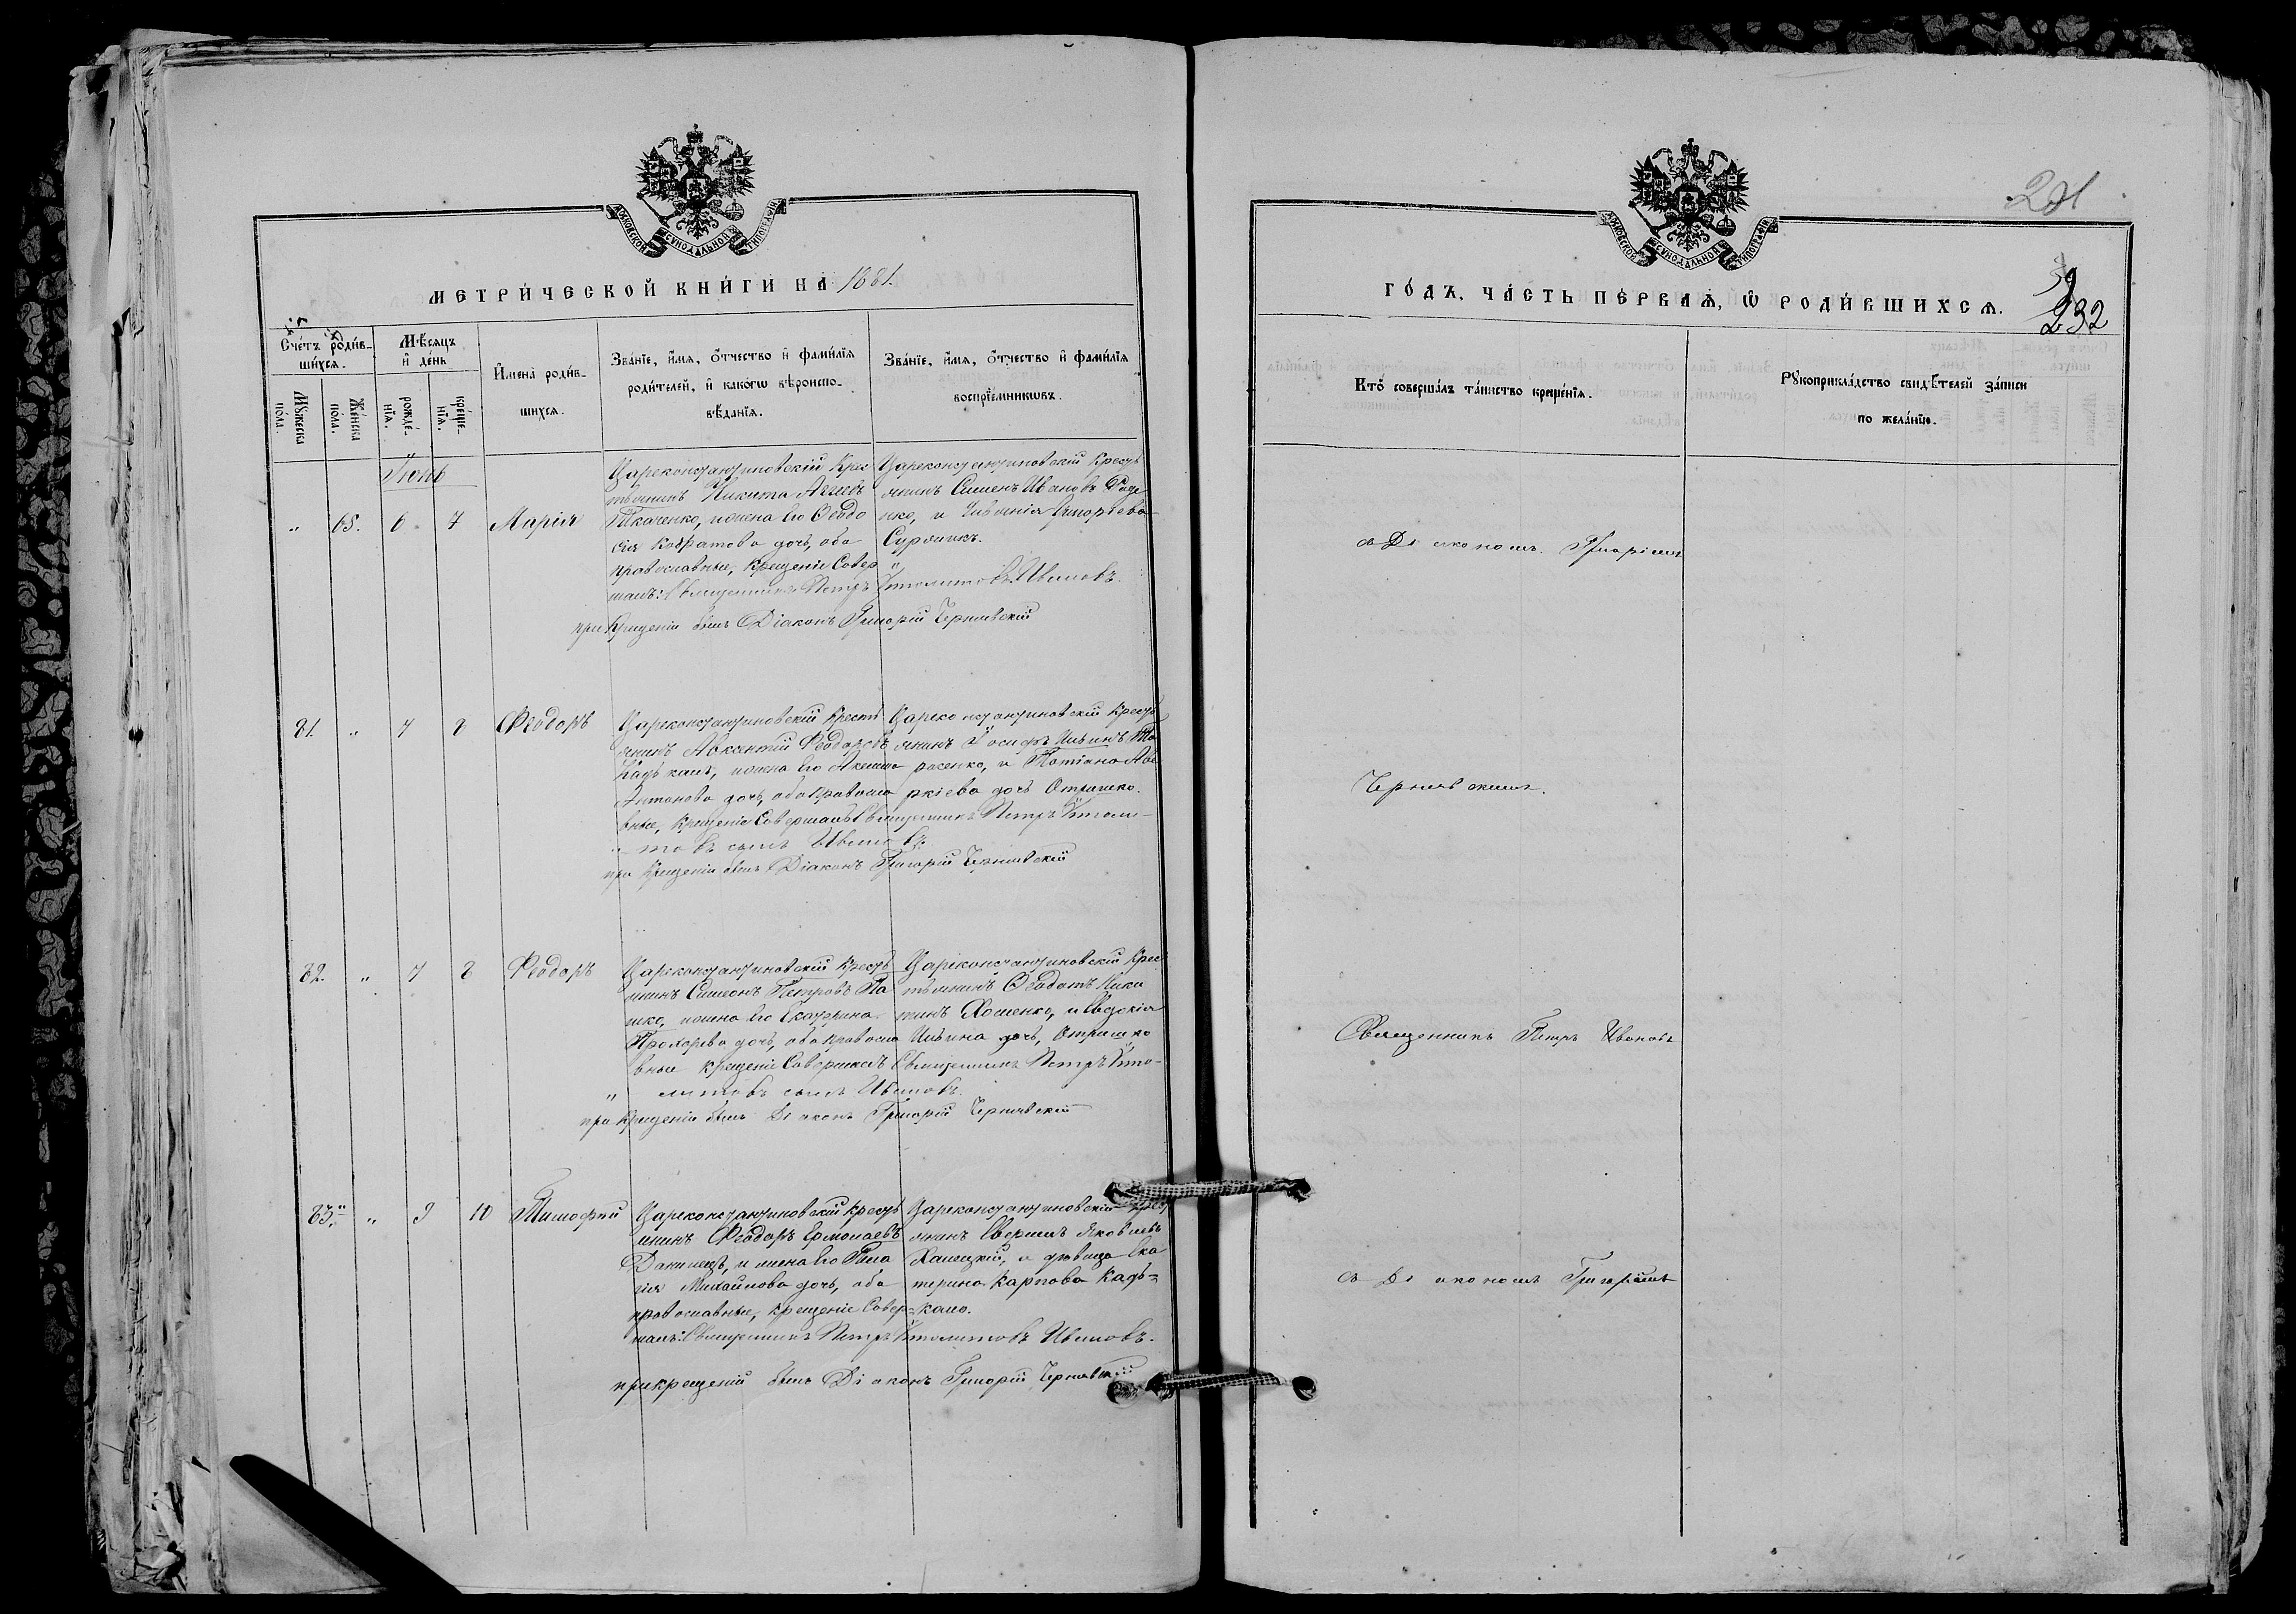 МОСКОВСКОЙ СѴНОДАЛЬНОЙ ТИПОГРАФІИ
МЕТРИ́ЧЕСКОЙ КНИ́ГИ НА 1881.
Сче́тъ роди́в-
шихся.
Мꙋ́жеска
по́ла.
Же́нска
по́ла.
Мѣ́сяцъ
и҆ де́нь
рожде́-
нїя.
креще́-
нїя.
И҆мена̀ роди́в-
шихся.
Зва́нїе, и҆́мя, ѻ҆́тчество и҆ фами́лїя
роди́телей, и҆ како́гѡ вѣроиспо-
вѣ́данїя.
Зва́нїе, и҆́мя, ѻ҆́тчество и҆ фами́лїя
воспрїе́мникѡвъ.
Іюнь
„ 65. 6. 7 Марія
Цареконстантиновскій Крес
тьянинъ Никита
Ткаченко, и жена Его Ѳеодо
сія Кодратова дочь, оба
православные, Крещеніе Совер
шалъ: Священникъ Петръ Иполитовъ Ивановъ.
при Крещеніи былъ Діаконъ Григорій Чернявскій
Цареконстантиновскій Кресть
янинъ Симеонъ Ивановъ
нко, и Григорьева
81. „ 7 8 Ѳеодоръ
Цареконстантиновскій Кресть
янинъ Авксентій Ѳеодоровъ
Кадькало, и жена Его Акелина
Антонова дочь, оба Правосла
вные, Крещеніе Совершалъ Священникъ Петръ Иполи-
„ товъ сынъ Ивановъ.
при Крещеніи былъ Діаконъ Григорій Чернявскій
Цареконстантиновскій Кресть
янинъ Іосифъ Ильинъ Та
расенко, и Татіана
ркіева дочь Отришко.
82. „ 7 8 Ѳеодоръ
Цареконстантиновскій Кресть
янинъ Симеонъ Петровъ Па
шко, и жена Его Екатерина
Прохорова дочь, оба Правосла
вные Крещеніе Совершалъ Священникъ Петръ Ипо-
„ литовъ сынъ Ивановъ.
при Крещеніи былъ Діаконъ Григорій Чернявскій
Цареконстантиновскій Крес
тьянинъ Ѳеодотъ Ники
тинъ Хоменко, и Евдокія
Ильина дочь, Отришко
83. „ 9 10 Тимофей
Цареконстантиновскій Кресть
янинъ Ѳеодоръ Ермолаевъ
Данилецъ, и жена Его Пела
гія Михайлова дочь, оба
православные, Крещеніе Совер=
шалъ: Священникъ Петръ Иполитовъ Ивановъ.
при крещеніи былъ Діаконъ Григорій Чернявскій
Цареконстантиновскій Крест
янинъ Яковлевъ
и дѣвица Ека
терина Карпова Кадь=
кало.
МОСКОВСКОЙ СѴНОДАЛЬНОЙ ТИПОГРАФІИ
232
ГО́ДЪ, ЧА́СТЬ ПЕ́РВАѦ, Ѡ҆ РОДИ́ВШИХСѦ.
Кто̀ соверша́лъ та́инство креще́нїя.
Рꙋкоприкла́дство свидѣ́телей за́писи
по жела́нїю.
съ Діакономъ Григоріемъ
Чернявскимъ.
Священникъ Петръ Ивановъ
съ Діакономъ Григоріемъ